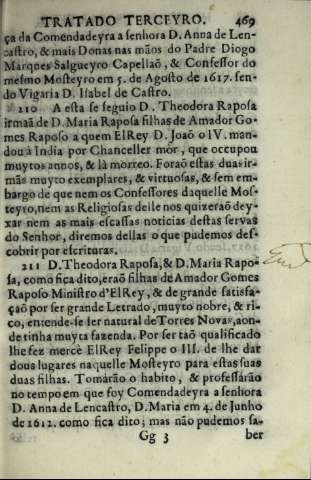 TRATADO TERCEYRO. 469
ça da Comendadeyra a senhora D. Anna de Len-
castro, & mais Donas nas mãos do Padre Diogo
Marques Salgueyro Capellaõ, & Confessor do
mesmo Mosteyro em 5. de Agosto de 1617. sen-
do Vigaria D. Isabel de Castro.
210 A esta se seguio D. Theodora Raposa
irmãa de D. Maria Raposa filhas de Amador Go-
mes Raposo a quem ElRey D. Joaõ o IV. man-
dou à India por Chanceller mòr, que occupou
muytos annos, & là morreo. Foraõ estas duas ir-
mãs muyto exemplares, & virtuosas, & sem em-
bargo de que nem os Confessores daquelle Mos-
teyro, nem as Religiosas delle nos quizeraõ dey-
xar nem as mais escassas noticias destas servas
do Senhor, diremos dellas o que pudemos des-
cobrir por escrituras.
211 D. Theodora Raposa, & D. Maria Rapo-
sa, como fica dito, eraõ filhas de Amador Gomes
Raposo Ministro d'ElRey, & de grande satisfa-
çaõ por ser grande Letrado, muyto nobre, & ri-
co, entende-se ser natural de Torres Novas, aon-
de tinha muyta fazenda. Por ser taõ qualificado
lhe fez mercè ElRey Felippe o III. de lhe dar
dous lugares naquelle Mosteyro para estas suas
duas filhas. Tomáraõ o habito, & professáraõ
no tempo em que foy Comendadeyra a senhora
D. Anna de Lencastro, D. Maria em 4. de Junho
de 1612. como fica dito; mas não pudemos sa-
Gg 3 ber